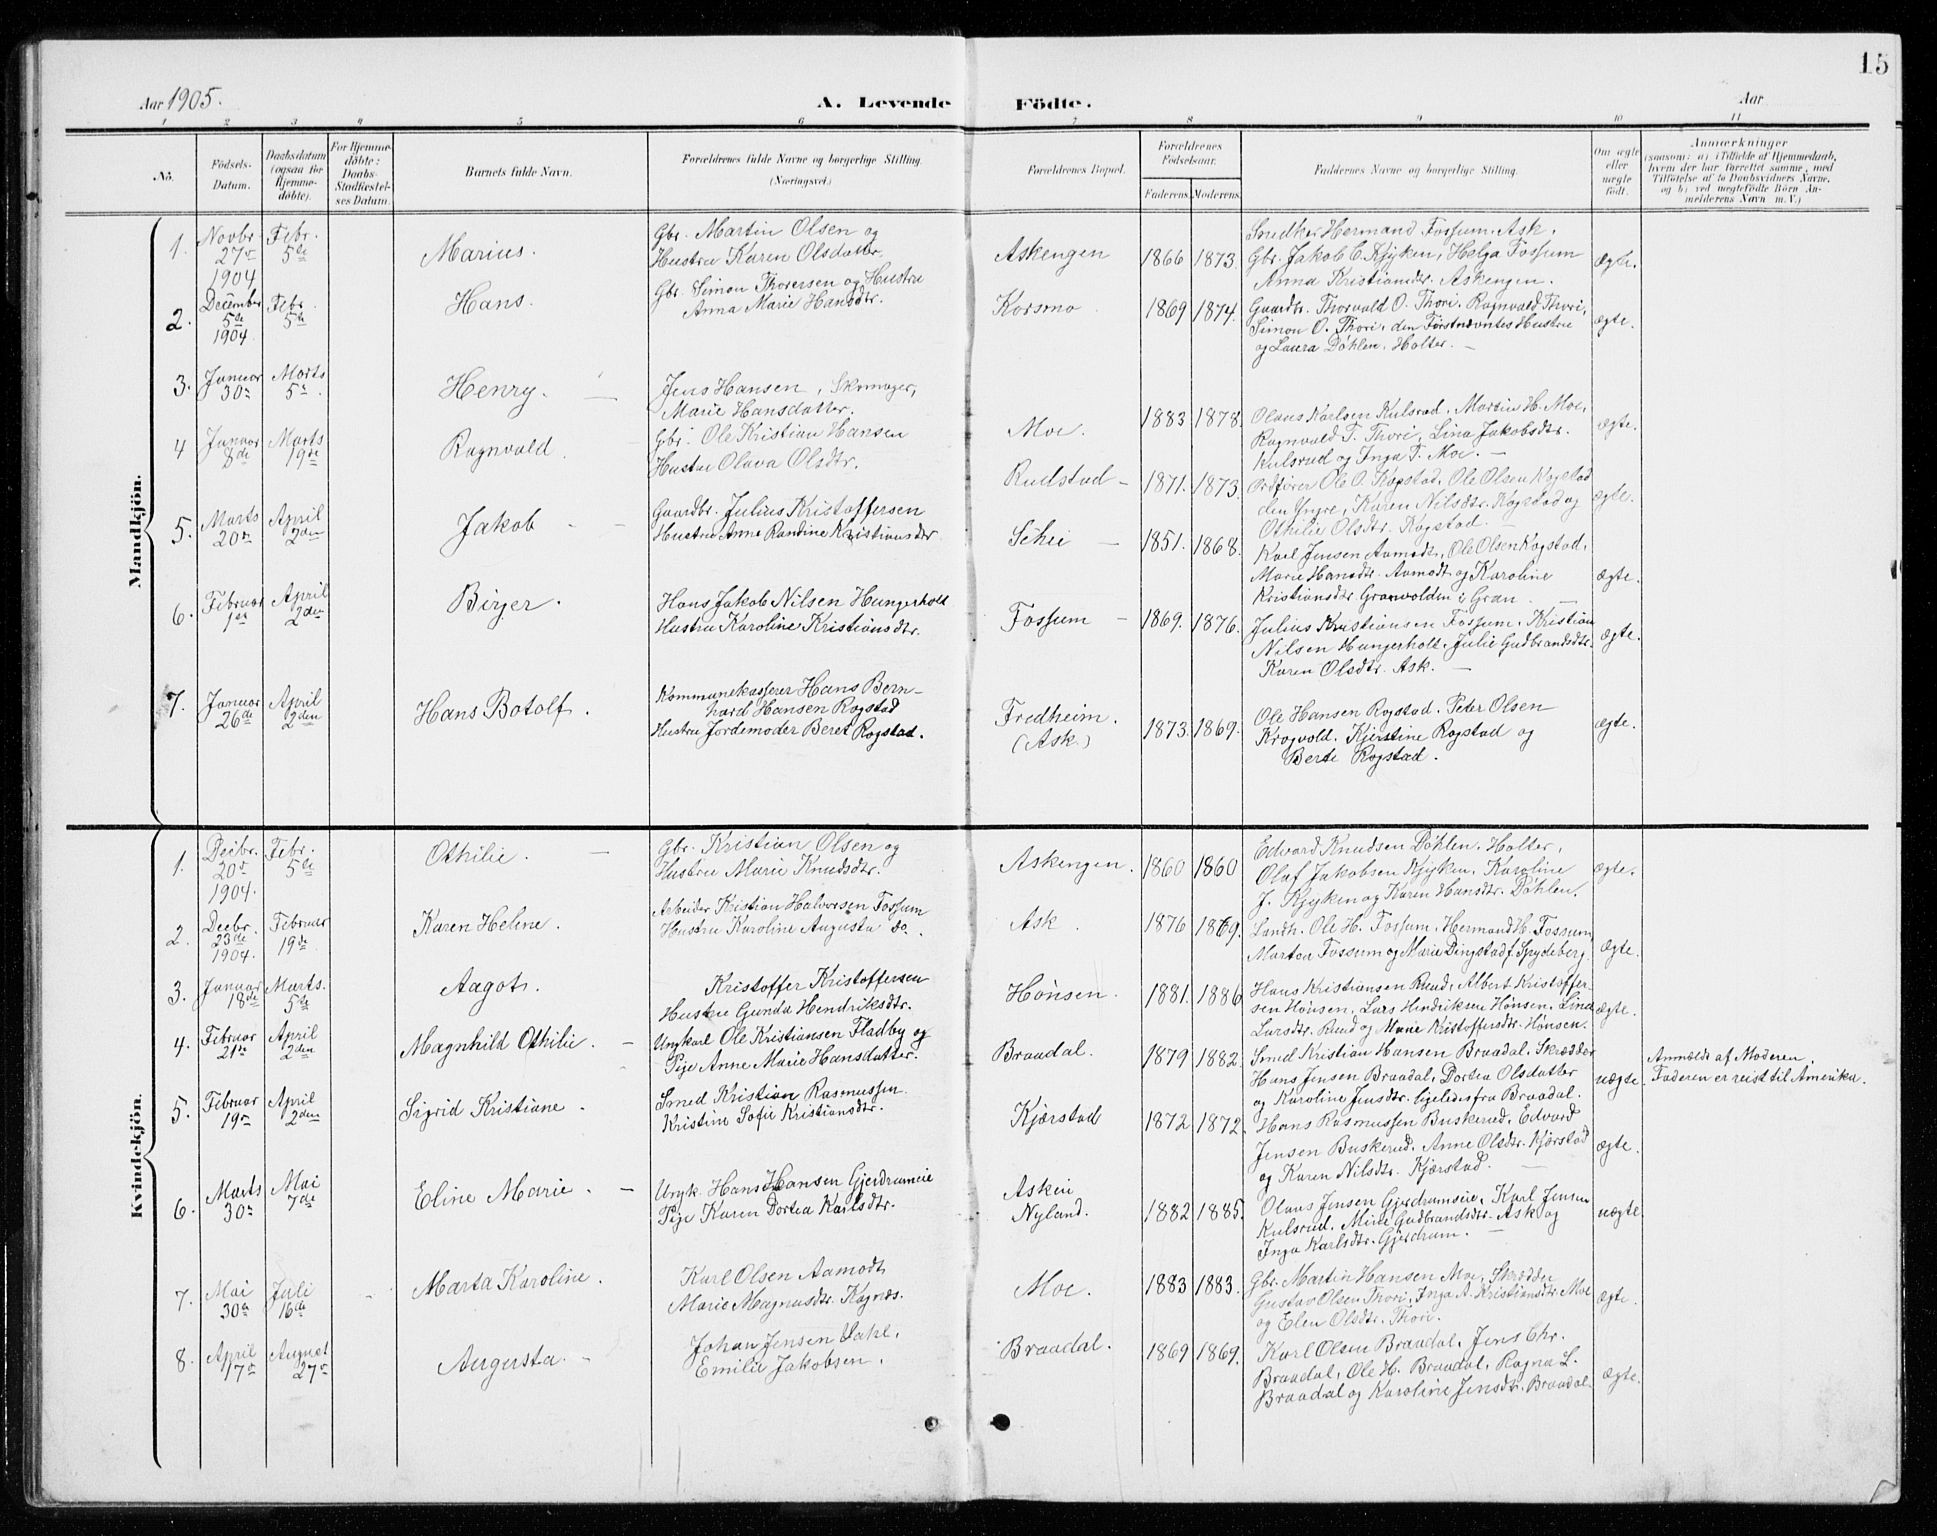 15
Aar 1905.
A. Levende Födte.
Aar
1 2 3 4 5 6 7 8 9 10 11
No.
Födsels-Datum.
Daabsdatum (ogsaa for Hjemme-døbte).
For Hjemme-døbte: Daabs-Stadfæstel-ses Datum.
Barnets fulde Navn.
Forældrenes fulde Navne og borgerlige Stilling. (Næringsvei.)
Forældrenes Bopæl.
Forældrenes Fødselsaar.
Faderens. Moderens.
Faddernes Navne og borgerlige Stilling.
Om ægte eller uægte født.
Anmærkninger
(saasom: a) i Tilfælde af Hjemmedaab, hvem der har forrettet samme, med Tilføielse af to Daabsvidners Navne, og b) ved uægtefødte Børn Anmelderens Navn m. V.)
Mandkjön.
1. Novbr. 27de 1904 Febr. 5te Marius. Gbr. Martin Olsen og Hustru Karen Olsdatter Askengen 1866 1873. Snedker Hermand Fossum. Ask, Gbr. Jakob E. Kjyken, Helga Fossum Anna Kristiansdtr. Askengen. ægte.
2. December 5te 1904. Febr. 5te Hans. Gbr. Simon Thoresen og Hustru Anna Marie Hansdtr. Korsmo 1869 1874. Gaardbr. Thorvald O. Thori, Ragnvald Thori, Simon O. Thori, den Førstnævntes Hustru og Laura Døhlen. Holter. ægte.
3. Januar 30te Marts 5te Henry. Jens Hansen, Skomager, Marie Hansdatter. Moe. 1883 1878. Olaus Karlsen Kulsrud, Martin H. Moe, Ragnvald T. Thori, Lina Jakobsdtr. Kulsrud og Inga T. Moe. ægte.
4 Januar 8de Marts 19de Ragnvald Gbr. Ole Kristian Hansen Hustru Olava Olsdtr. Rudstad 1871. 1873. Ordfører Ole O. Rogstad, Ole Olsen Rogstad den Yngre, Karen Nilsdtr. Rogstad og Othilie Olsdtr. Rogstad. ægte.
5. Marts 20de April 2den Jakob Gaardbr. Julius Kristoffersen Hustru Anne Randine Kristiansdtr Schei 1851. 1868. Karl Jensen Aamodt, Ole Olsen Rogstad, Marie Hansdtr. Aamodt og Karoline Kristiansdtr. Granvolden i Gran. ægte.
6. Februar 1ste April 2den Birger. Hans Jakob Nilsen Hungerholt Hustru Karoline Kristiansdtr. Fossum 1869. 1876. Julius Kristiansen Fossum. Kristian Nilsen Hungerholt, Julie Gudbrandsdtr. Karen Olsdtr. Ask. ægte.
7. Januar 26de April 2den Hans Botolf. Kommunekasserer Hans Bernhard Hansen Rogstad Hustru Jordemoder Beret Rogstad. Fredheim. (Ask.) 1873. 1869. Ole Hansen Rogstad. Peter Olsen Krogvold. Kjerstine Rogstad og Berte Rogstad. ægte.
Kvindekjön.
1. Decbr. 20de 1904. Febr. 5te Othilie. Gbr. Kristian Olsen og Hustru Marie Knudsdtr. Askengen. 1860 1860 Edvard Knudsen Døhlen. Holter, Olaf Jakobsen Kjyken. Karoline J. Kjyken og Karen Hansdtr. Døhlen. ægte.
2. Decbr. 23de 1904. Februar 19de Karen Helene. Arbeider Kristian Halvorsen Fossum Hustru Karoline Augusta do. Ask. 1876 1869. Landh. Ole H. Fossum, Hermand H. Fossum, Martea Fossum og Marie Dingstad f. Spydeberg. ægte.
3. Januar 18de Marts. 5te Aagot. Kristoffer Kristoffersen Hustru Gunda Hendriksdtr. Hønsen. 1881. 1886 Hans Kristiansen Ruud, Albert Kristoffersen Hønsen, Lars Hendriksen Hønsen. Lina Larsdtr. Ruud og Marie Kristoffersdtr. Hønsen. ægte.
4. Februar 21de April 2den Magnhild Othilie. Ungkarl Ole Kristiansen Fladby og Pige Anne Marie Hansdatter. Braadal. 1879 1882. Smed Kristian Hansen Braadal, Skrædder Hans Jensen Braadal, Dortea Olsdatter og Karoline Jensdtr. ligeledes fra Braadal. uægte. Anmeldt af Moderen. Faderen er reist til Amerika.
5. Februar 19de April 2den Sigrid Kristiane. Smed Kristian Rasmussen Kristine Sofie Kristiansdtr. Kjærstad 1872 1872. Hans Rasmussen Buskerud, Edvard Jensen Buskerud. Anne Olsdtr. Kjærstad og Karen Nilsdtr. Kjærstad. ægte.
6. Marts 30te Mai 7de Eline Marie. Ungk. Hans Hansen Gjerdrumeie Pige Karen Dortea Karlsdtr. Askeie Nyland. 1882 1885. Olaus Jensen Gjerdrumseie, Karl Jensen Kulsrud. Mina Gudbrandsdtr. Ask og Inga Karlsdtr. Gjerdrum. uægte
7. Mai 30te Juli 16de Marta Karoline. Karl Olsen Aamodt Marie Magnusdtr. Kognæs. Moe. 1883 1883. Gbr. Martin Hansen Moe, Skrædder Gustav Olsen Thori, Inga A. Kristiansdtr. Moe og Elen Olsdtr. Thori. ægte.
8. April 17de August 27de Augusta. Johan Jensen Dahl, Emilie Jakobsen. Braadal. 1869 1869. Karl Olsen Braadal, Jens Chr. Braadal, Ole H. Braadal, Ragna L. Braadal og Karoline Jensdtr. Braadal. ægte.